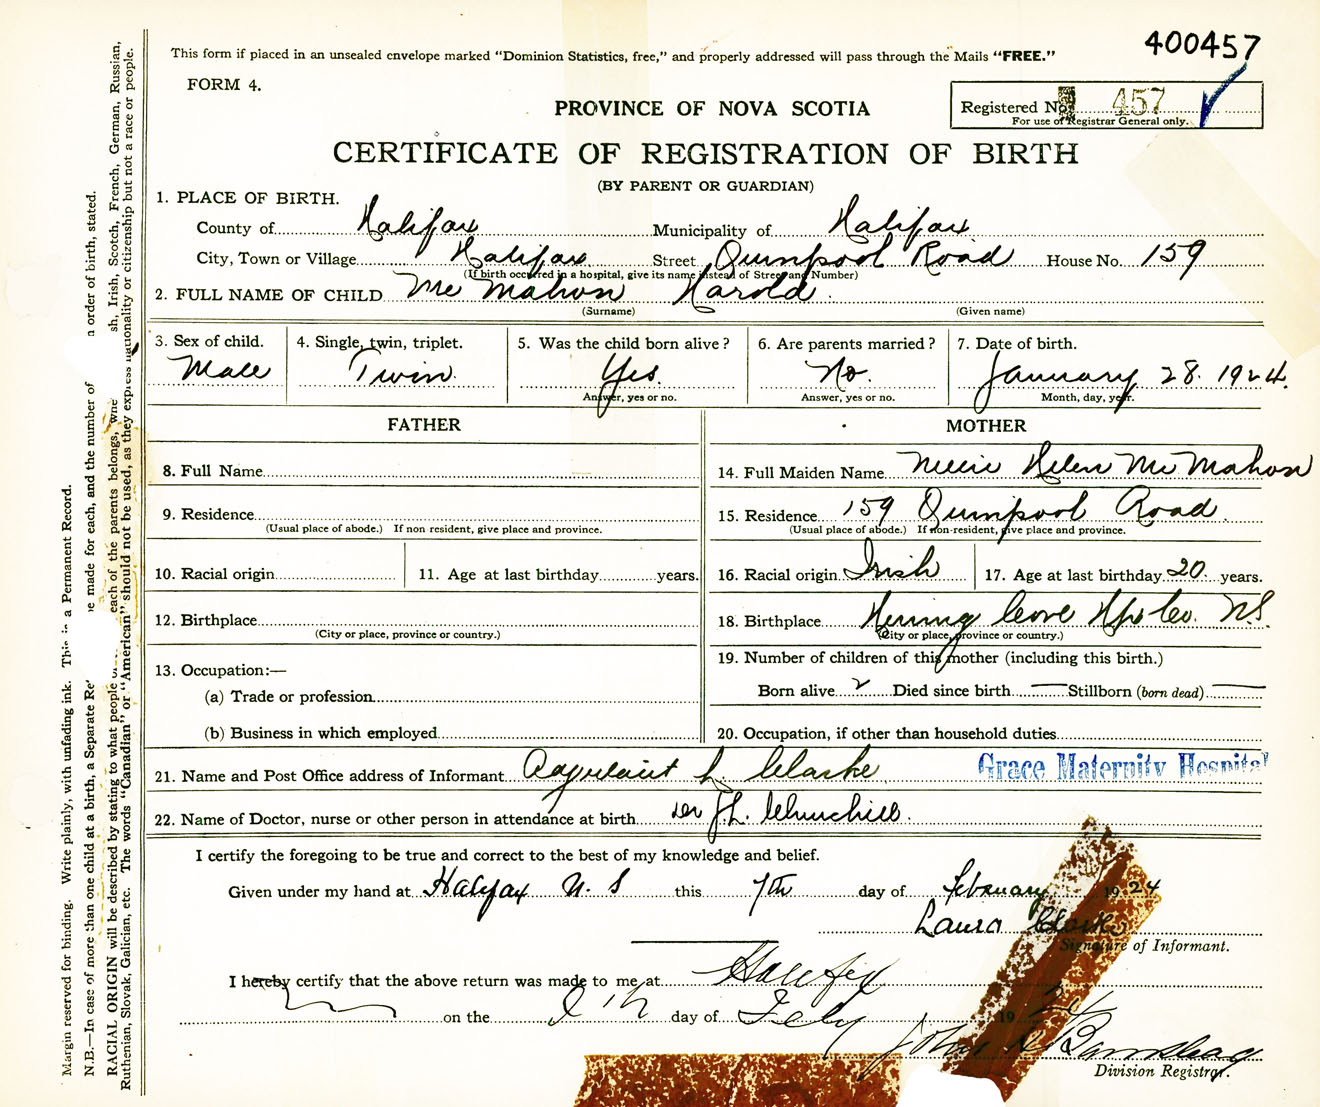 400457
This form if placed in an unsealed envelope marked "Dominion Statistics, free," and properly addressed will pass through the Mails "FREE."
FORM 4.
Registered No. 457
For use of Registrar General only.
PROVINCE OF NOVA SCOTIA
CERTIFICATE OF REGISTRATION OF BIRTH
(BY PARENT OR GUARDIAN)
1. PLACE OF BIRTH.
County of Halifax Municipality of Halifax
City, Town or Village Halifax Street Quinpool Road House No. 159
(If birth occurred in a hospital, give its name instead of Street and Number)
2. FULL NAME OF CHILD Mc Mahon Harold
(Surname) (Given name)
3. Sex of child. 4. Single, twin, triplet. 5. Was the child born alive? 6. Are parents married? 7. Date of birth.
Male Twin Yes. No. January 28. 1924.
Answer, yes or no. Answer, yes or no. Month, day, year.
FATHER MOTHER
8. Full Name 14. Full Maiden Name Nellie Helen Mc Mahon
9. Residence 15. Residence 159 Quinpool Road
(Usual place of abode.) If non resident, give place and province. (Usual place of abode.) If non-resident, give place and province.
10. Racial origin 11. Age at last birthday years. 16. Racial origin Irish 17. Age at last birthday 20 years.
12. Birthplace 18. Birthplace Herring Cove Hfx Co. N.S.
(City or place, province or country.) (City or place, province or country.)
13. Occupation:— 19. Number of children of this mother (including this birth.)
(a) Trade or profession Born alive 2 Died since birth — Stillborn (born dead) —
(b) Business in which employed 20. Occupation, if other than household duties
21. Name and Post Office address of Informant L. Clarke Grace Maternity Hospital
22. Name of Doctor, nurse or other person in attendance at birth Dr J.L. Churchill.
I certify the foregoing to be true and correct to the best of my knowledge and belief.
Given under my hand at Halifax N. S this 7th day of February 1924
Laura Clarke
Signature of Informant.
I hereby certify that the above return was made to me at Halifax
on the day of Feby 1924
John
Division Registrar.
Margin reserved for binding. Write plainly, with unfading ink. This is a Permanent Record.
N.B.—In case of more than one child at a birth, a Separate Re e made for each, and the number of n order of birth, stated.
RACIAL ORIGIN will be described by stating to what people each of the parents belongs, sh, Irish, Scotch, French, German, Russian,
Ruthenian, Slovak, Galician, etc. The words "Canadian" or "American" should not be used, as they express nationality or citizenship but not a race or people.